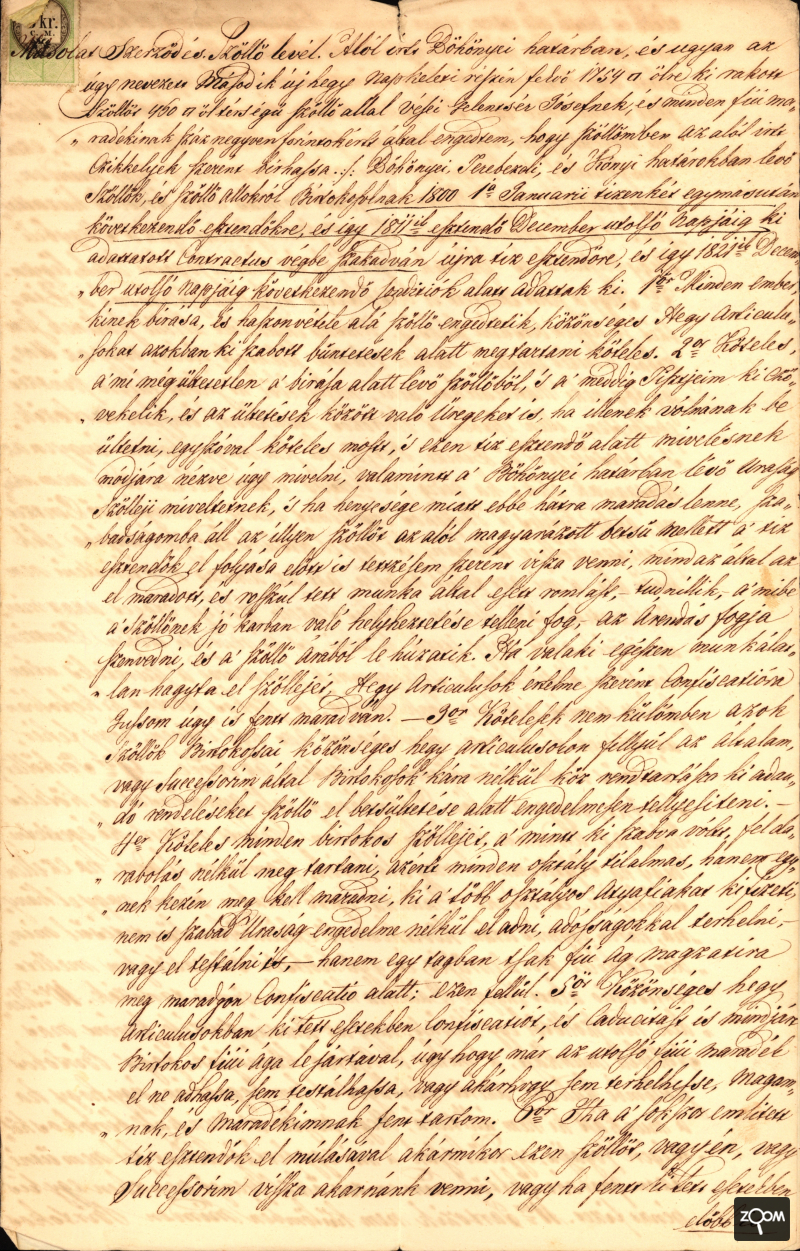 kr.
C. M.
Másolat Szerződés. Szöllő levél. Alól írt Bökönyei határban, és ugyan az
úgy nevezett Második új hegy Napkeleti részin felvő 1754 □ ölre ki rakott
Szöllős 460 □ öl térségű szöllő által Vései Jósefnek, és minden fiú ma-
„ radékinak száz negyven forintokért által engedtem, hogy szöllőmben az alól írt
Czikkelyek szerent bírhassa. Bökönyei, Terebezdi, és Kónyi határokban levő
Szöllők, és szöllő allokról Birtokosoknak 1800 1ª Januarii tizenkét egymásután
következendő esztendőkre, és így 1811ik esztendő December utolsó Napjáig ki
adattatott Contractus végbe szakadván újra tíz esztendőre, és így 1821ik Decem-
„ ber utolsó napjáig következendő Conditiók alatt adattak ki. 1ör Minden ember
kinek birása, és haszonvétele alá szöllő engedtetik, közönséges Hegy Articulu-
„ sokat azokban ki szabott büntetések alatt megtartani köteles. 2or Köteles,
a' mi meg ültetetlen a' birása alatt lévő szöllőből, 's a' meddig Tisztjeim ki czö-
„ vekelik, és az ültetések között való üregeket is, ha illenek vólnának be
ültetni, egyszóval köteles most, 's ezen tíz esztendő alatt mivelésnek
módjára nézve úgy mivelni, valamint a' Bökönyei határban lévő Urasági
Szöllei miveltetnek, 's ha henyesége miatt ebbe hátra maradás lenne, sza-
„ badságomba áll az illyen szöllőt az alól magyarázott betsű mellett a' tíz
esztendők el folyása előtt is tettzésem szerent vissza venni, mind az által az
el maradott, és rosszúl tett munka által esett romlást, – tudniilik, a' mibe
a' szöllőnek jó karban való helyheztetése telleni fog, az Arendás fogja
szenvedni, és a' szöllő árából le húzatik. Ha valaki egészen munkálat-
„ lan hagyta el szöllejét, Hegy Articulusok értelme szerént Confiscatióra
Jussom úgy is fent maradván. – 3or Kötelesek nem külömben azok
Szöllők Birtokossai közönséges hegy articulusokon fellyűl az általam,
vagy Successorim által Birtokosok kára nélkül köz rendtartásra ki adan-
„ dó rendeléseket szöllő el betsültetése alatt engedelmesen tellyesíteni. –
4er Köteles minden birtokos szöllejét, a' mint ki szabva vólt, fel da-
„ rabolás nélkül meg tartani, azért minden osztály tilalmas, hanem egy-
„ nek kezén meg kell maradni, ki a' több osztályos Atyafiakat ki fizeti,
nem is szabad Uraság engedelme nélkül el adni, adósságokkal terhelni,–
vagy el testálni is, – hanem egy tagban tsak fiú ág magzatira
meg maradgyon Confiscatio alatt; ezen fellűl. 5ör Közönséges hegy
Articulusokban ki tett esetekben confiscatiót, és Caducitást is mindjárt
Birtokos fiúi ága lejártával, úgy hogy már az utolsó fiúi maradék
el ne adhassa, sem testálhassa, vagy akárhogy sem terhelhesse, magam-
„ nak, és maradékimnak fent tartom. 6or Ha a' sokszor említett
tíz esztendők el múlásával akármikor ezen szöllőt, vagy én, vagy
Successorim vissza akarnánk venni, vagy ha fent ki tett esetekben
előbb
ZOOM